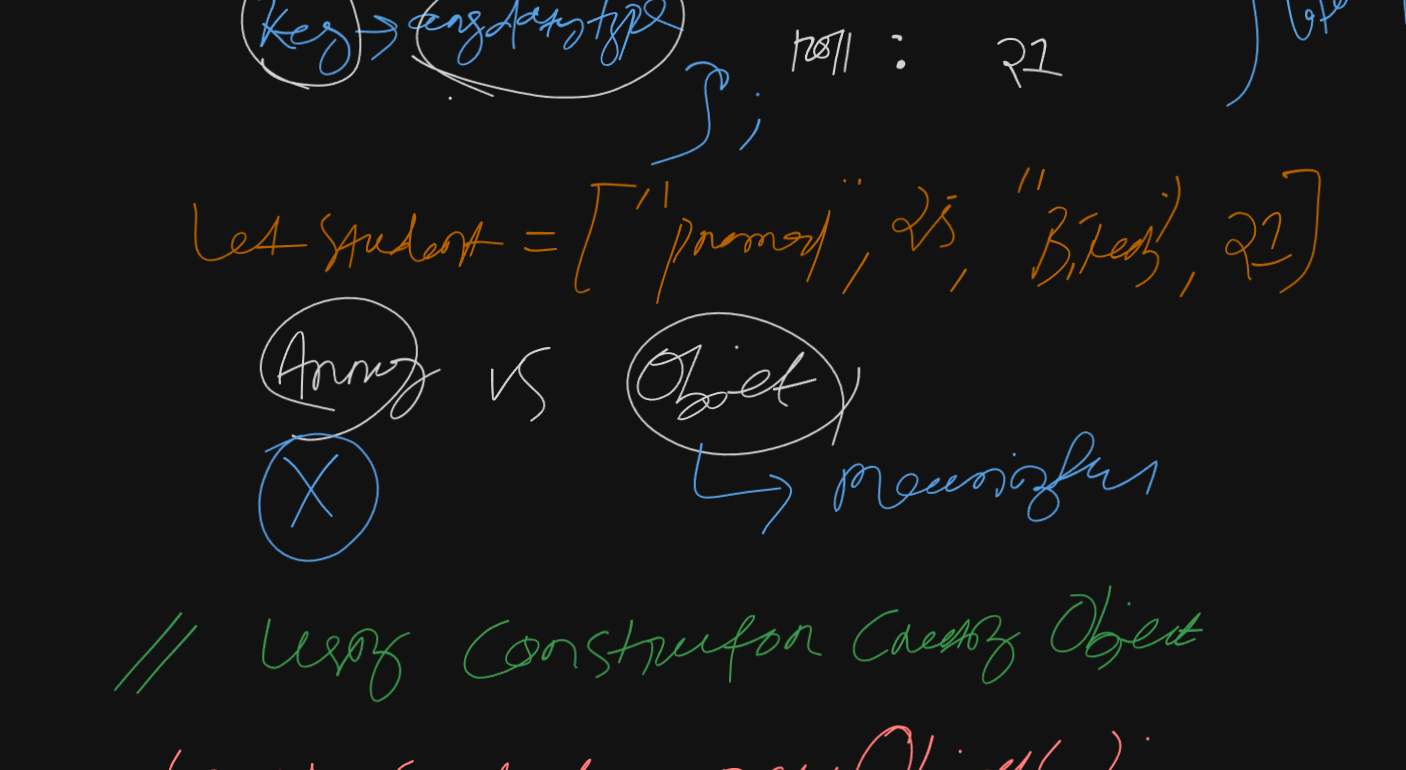 Key → any datatype
roll : 21
};
let student = ["pramod", 25, "B.Tech", 21]
Array vs Object
X → meaningful
// Using Constructor Creating Object
new Object();